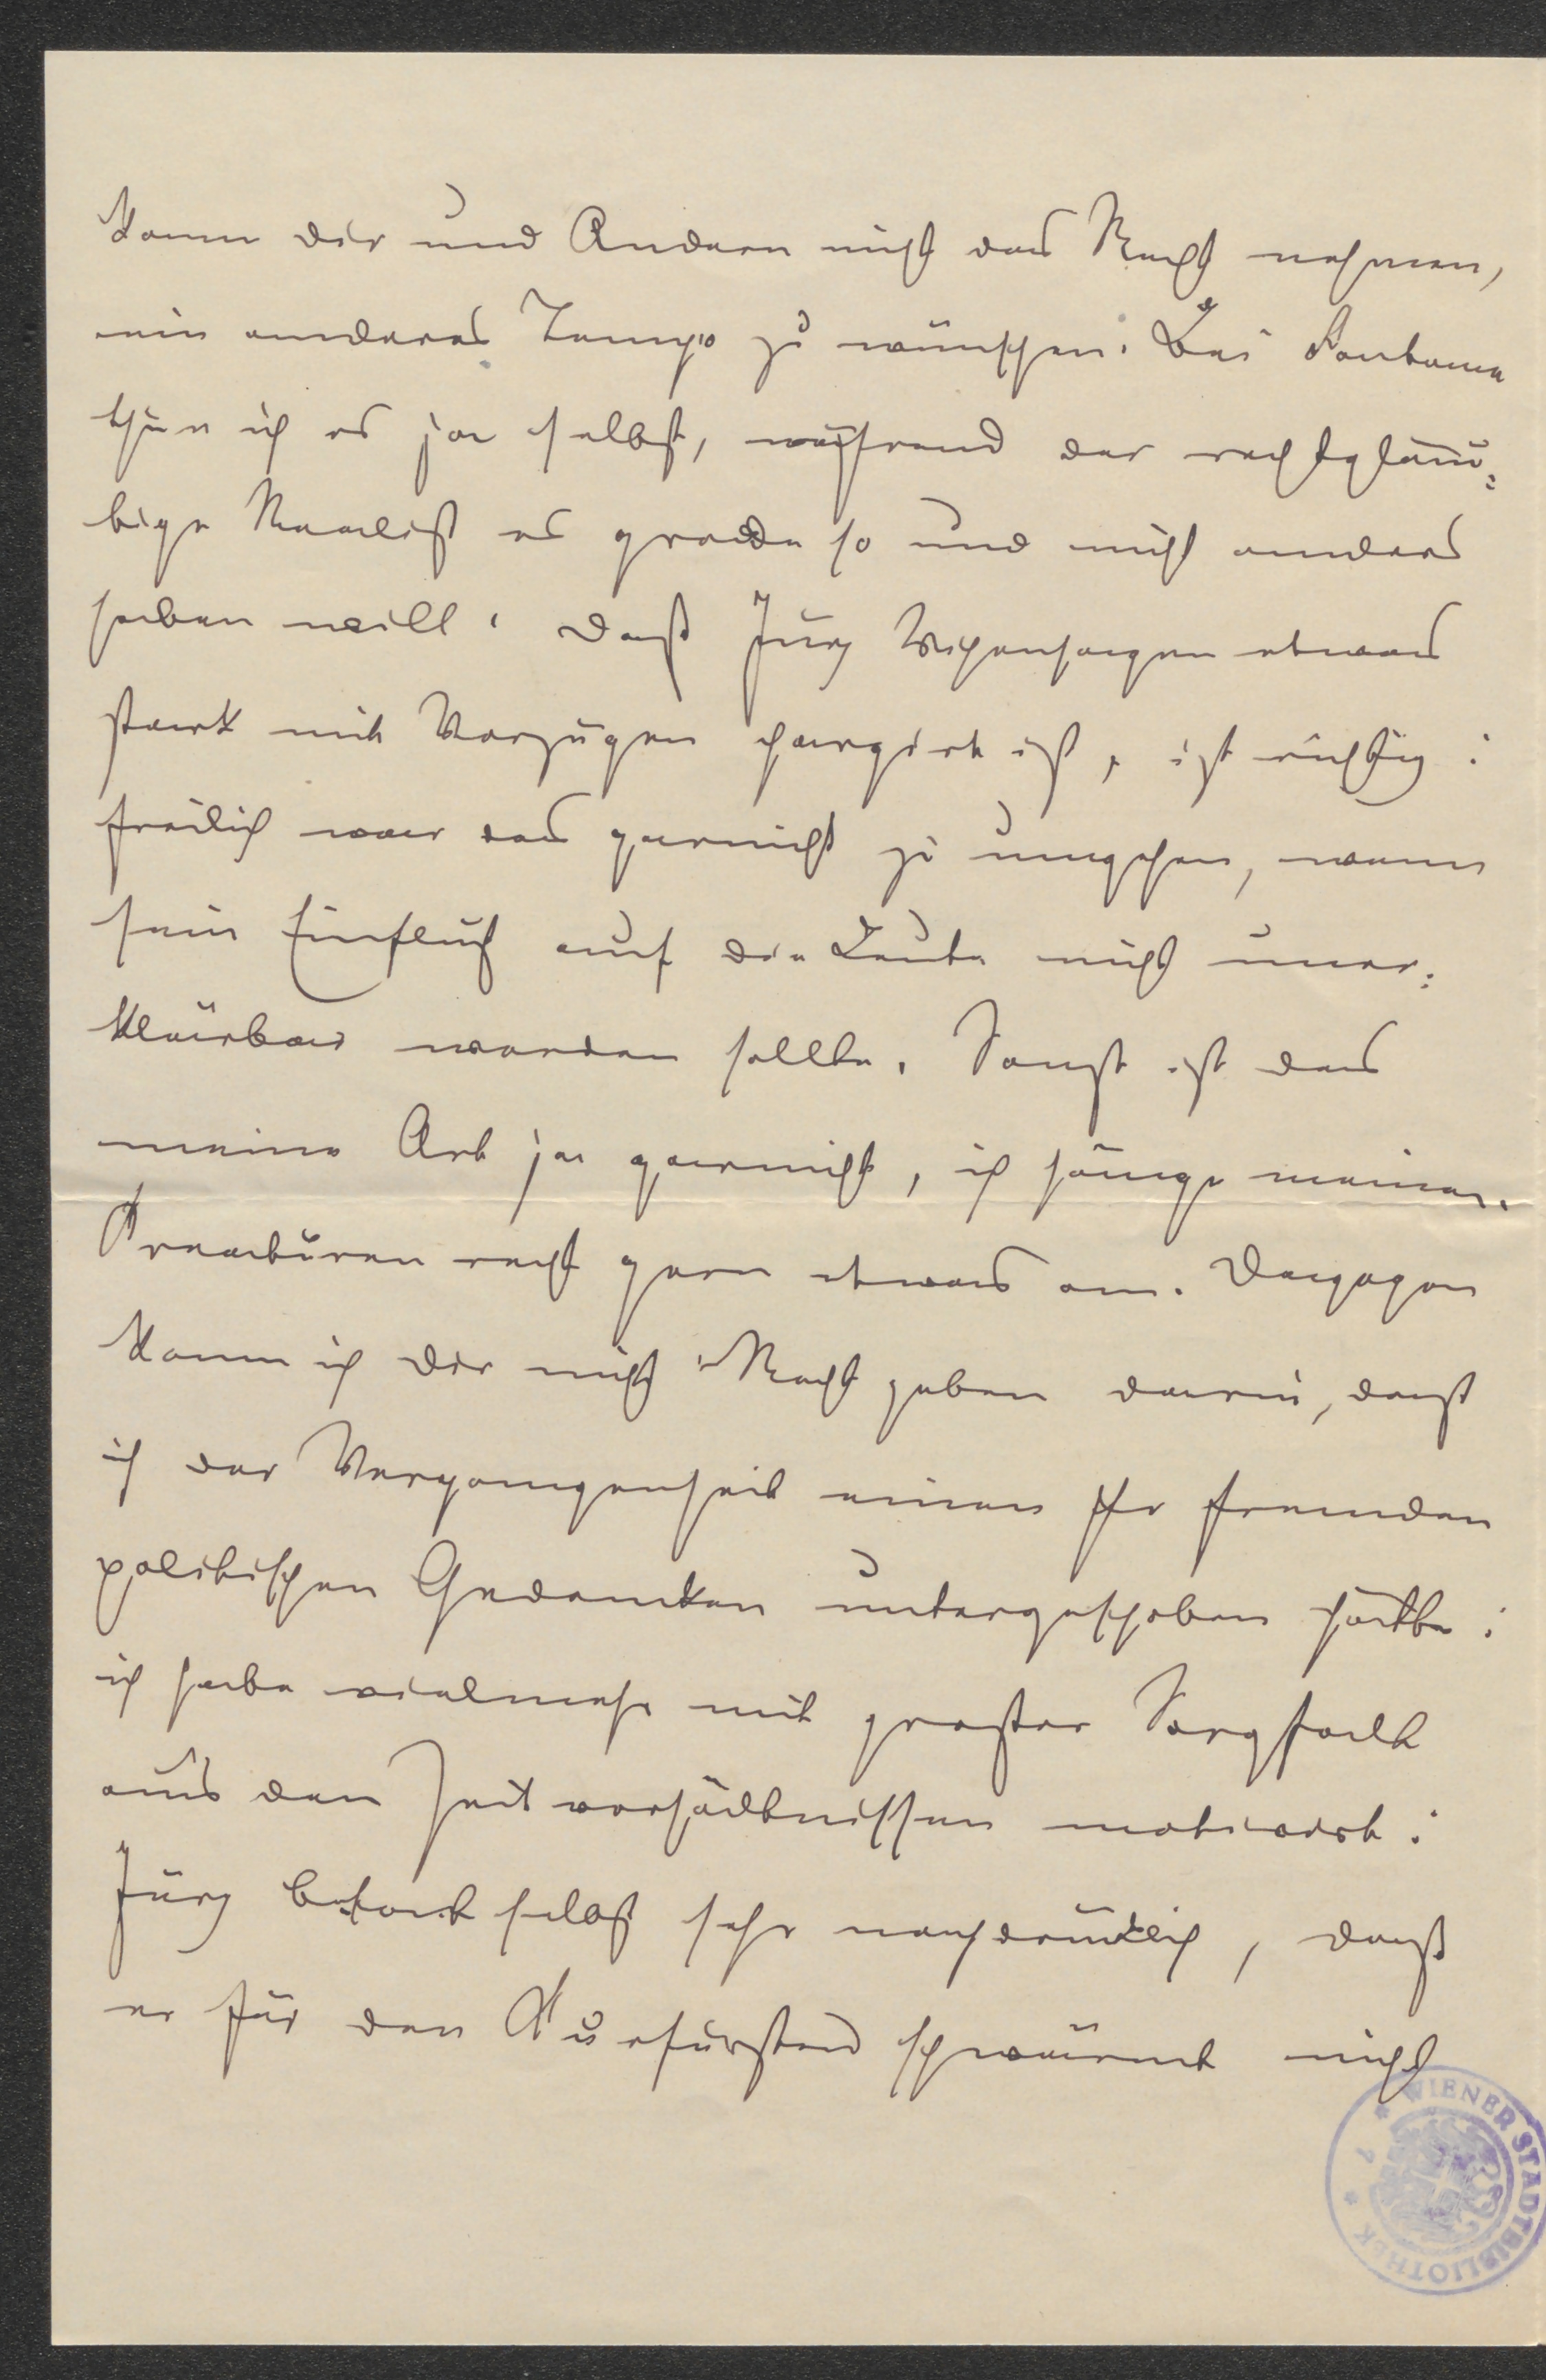 kann dir und Andern nicht das Recht nehmen,
ein anderes Tempo zu wünschen. Bei Fontane
thue ich es ja selbst, während der rechtgläu-
bige Realist es grade so und nicht anders
haben will. Daß Jürg Wespenhagen etwas
stark mit Vorzügen chargirt ist, ist richtig:
freilich war das garnicht zu umgehen, wenn
sein Einfluß auf die Leute nicht uner-
klärbar werden sollte. Sonst ist das
meine Art ja garnicht, ich hänge meinen
Kreaturen recht gern etwas an. Dagegen
kann ich dir nicht Recht geben darin, daß
ich der Vergangenheit einen ihr fremden
politischen Gedanken untergeschoben hätte:
ich habe vielmehr mit großer Sorgfalt
aus den Zeitverhältnissen motivirt:
Jürg betont selbst sehr nachdrücklich, daß
er für den Kurfürsten schwärmt nicht
WIENER STADTBIBLIOTHEK